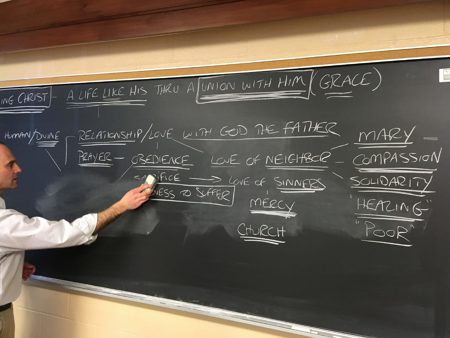 ING CHRIST - A LIFE LIKE HIS THRU A UNION WITH HIM (GRACE)
HUMAN/DIVINE RELATIONSHIP/LOVE WITH GOD THE FATHER MARY -
PRAYER - OBEDIENCE LOVE OF NEIGHBOR - COMPASSION
IFICE → LOVE OF SINNERS SOLIDARITY
NESS TO SUFFER MERCY "HEALING"
CHURCH "POOR"